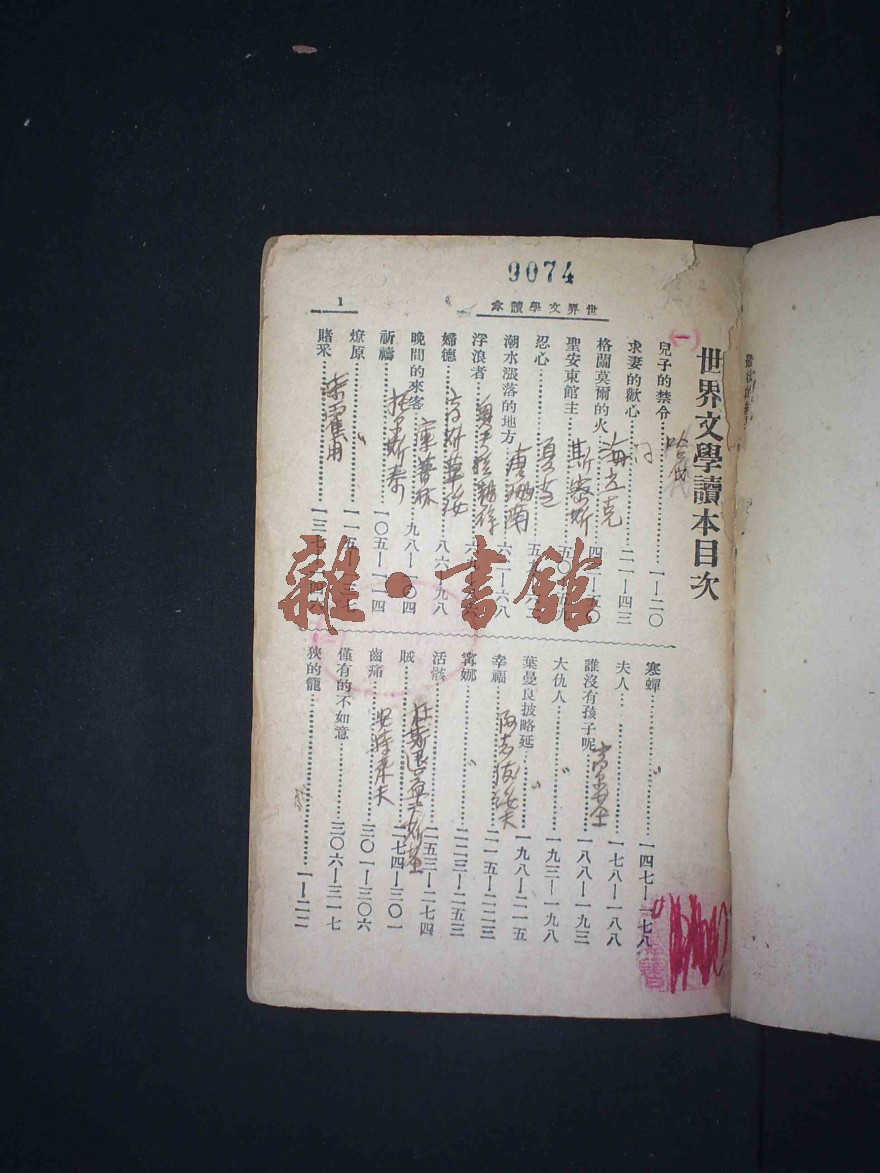 9074
世界文學讀本
1
(一)
世界文學讀本目次
兒子的禁令…………一—二〇
求妻的歡心…………二一—四三
格蘭莫爾的火 海立克
聖安東館主 斯蒂芬斯 五〇
忍心
潮水漲落的地方 六二—六八
浮浪者
婦德 八六—九八
晚間的來客 庫普林 九八—一〇四
祈禱 托爾斯泰 一〇五—一一四
燎原 〃 一一五
賭采 柴霍甫 一三七
寒蟬 〃 一四七—一七八
夫人…………一七八—一八八
誰沒有孩子呢 高爾基 一八八—一九三
大仇人 〃 一九三—一九八
葉曼良披略延 〃 一九八—二一五
幸福 二一五—二二三
寗娜 〃 二二三—二五三
活骸…………二五三—二七四
賊 杜斯退益夫斯基 二七四—三〇一
齒痛 安特萊夫 三〇一—三〇六
僅有的不如意…………三〇六—三一七
狹的籠…………一—二二
雜·書館